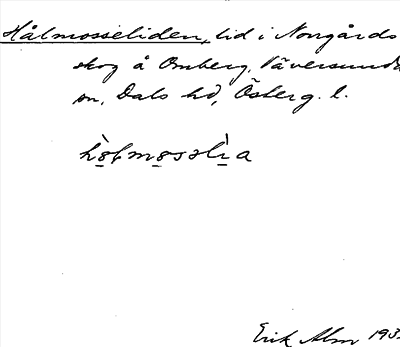 Hålmosseliden, lid i Norrgårds
skog å Omberg. Väversunds
sn, Dals hd, Österg. l.
hòlmossəlìa
Erik Alm 193